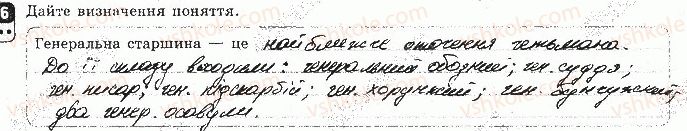 6 Дайте визначення поняття.
Генеральна старшина — це найближче оточення гетьмана.
До її складу входили: генеральний обозний; ген. суддя;
ген. писар; ген. підскарбій; ген. хорунжий; ген. бунчужний;
два генер. осавули.